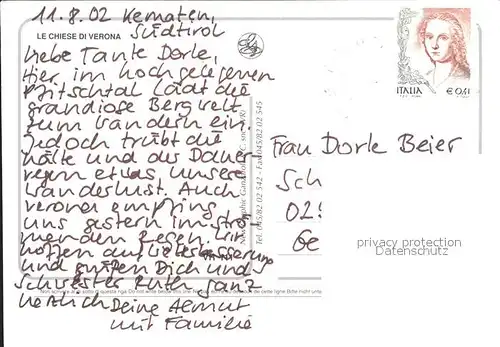 11.8.02 Kematen,
Südtirol
LE CHIESE DI VERONA
Liebe Tante Dorle,
Hier im hochgelegenen
Pfitschtal lädt die
grandiose Bergwelt
zum Wandern ein.
Jedoch trübt die
Kälte und der Dauer
regen etwas unsere
Wanderlust. Auch
Verona empfing
uns gestern im strö-
menden Regen. Wir
hoffen auf Wetterbesserung
und grüßen Dich und
Schwester Ruth ganz
herzlich Deine
mit Familie
ITALIA € 0,41
Frau Dorle Beier
Sch
02
Ge
privacy protection
Datenschutz
Tel. 045/82 02 542 - Fax 045/82 02 545